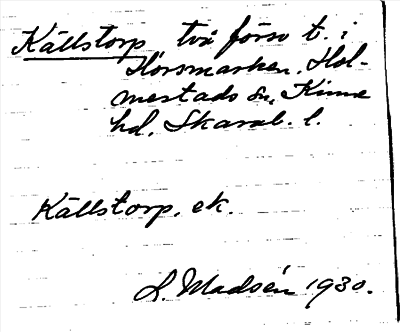 Källstorp, två försv t. i
Horsmarken, Hol-
mestads sn, Kinne
hd, Skarab. l.
Källstorp, ek.
L. Madsén 1930.